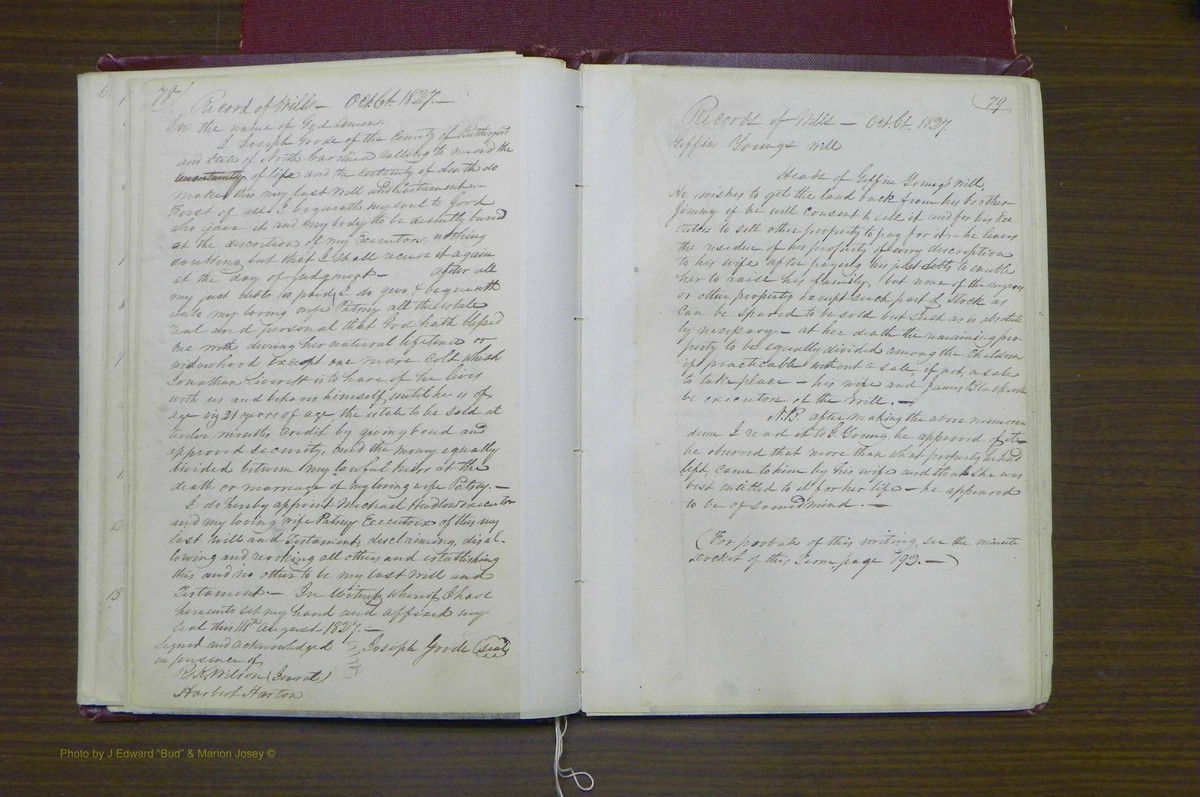 78
Record of Wills — Oct. Ct. 1827. —
In the name of God Amen.
I Joseph Goode of the County of Rutherford
and State of North Carolina calling to mind the
uncertainty of life and the certainty of death do
make this my last Will and Testament. —
First of all I bequeath my soul to God
who gave it and my body to be decently buried
at the discretion of my Executors, nothing
doubting but that I shall receive it again
at the day of Judgment — after all
my just debts is paid, I do give & bequeath
unto my loving wife Patsey all the estate
real and personal that God hath blessed
me with during her natural lifetime or
widowhood except one mare Colt which
Jonathan is to have if he lives
with us and behaves himself until he is of
age viz 21 years of age the estate to be sold at
twelve months Credit by giving bond and
approved security, and the money equally
divided between my lawful heirs at the
death or marriage of my loving wife Patsey. —
I do hereby appoint Michael Hudlow executor
and my loving wife Patsey Executrix of this my
last Will and Testament, disclaiming, disal-
lowing and revoking all others and establishing
this and no other to be my last Will and
Testament. — In witness whereof I have
hereunto set my hand and affixed my
seal this 14th August 1827. —
Signed and acknowledged Joseph Goode (seal)
in presence of
Wilson (Jurat)
Harbert Harton
12
13
79
Records of Wills — Oct. Ct. 1827
Giffin Youngs Will
Heads of Giffin Young's Will,
He wishes to get the land back from his brother
Jimmy if he will consent to sell it and for his Exe-
cutors to sell other property to pay for it — he leaves
the residue of his property of every description
to his wife after paying his just debts to enable
her to raise his family, but none of the negroes
or other property except such part of stock as
can be spared to be sold but such as is absolute
ly necessary. — at her death the remaining pro-
perty to be equally divided among the Children
if practicable without a sale, if not, a sale
to take place — his wife and
be executors of the Will. —
N.B. after making the above memoran
dum I read it to G. Young, he approved of it
he observed that more than what property he had
left, came to him by his wife and that she was
best entitled to it for her life — he appeared
to be of sound mind. —
(For probate of this writing, see the minute
docket of this Term, page 193. —)
Photo by J Edward "Bud" & Marion Josey ©